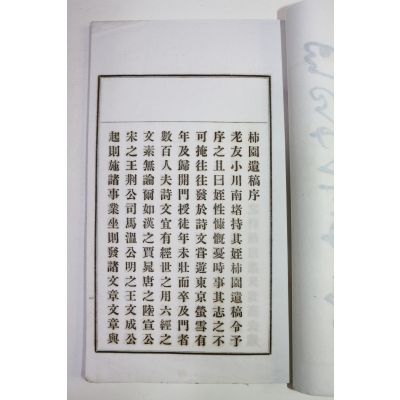 柿園遺稿序
老友小川南塔持其姪柿園遺稿令予
序之且曰姪性慷慨憂時事其志之不
可掩往往發於詩文甞遊東京螢雪有
年及歸開門授徒年未壯而卒及門者
數百人夫詩文宜有經世之用六經之
文素無論爾如漢之賈晁唐之陸宣公
宋之王荆公司馬溫公明之王文成公
起則施諸事業坐則發諸文章文章與